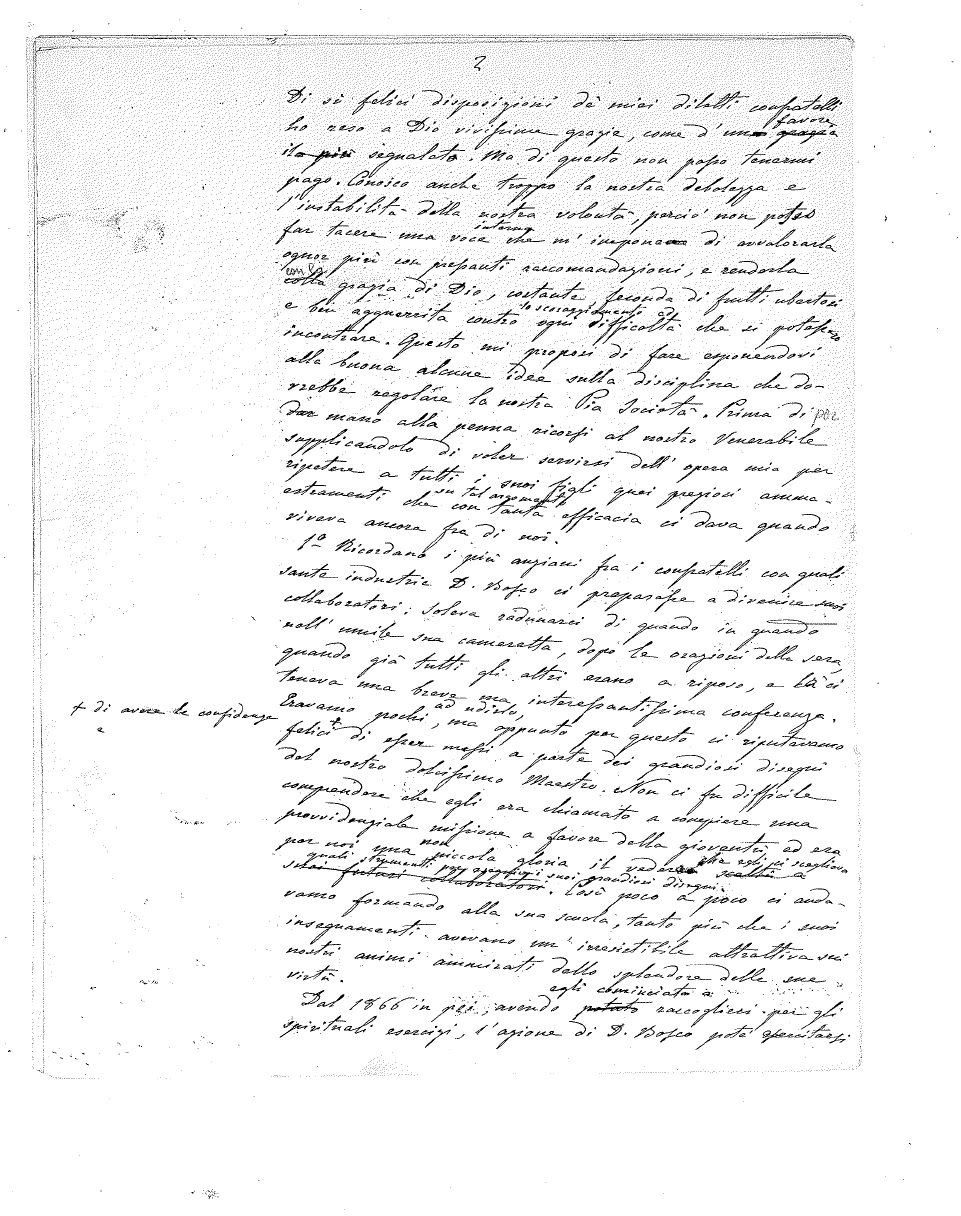 2
Di sì felici disposizioni de' miei diletti confratelli
favore
ho reso a Dio vivissime grazie, come d'una grazia
la più segnalato. Ma di questo non posso tenermi
pago. Conosco anche troppo la nostra debolezza e
l'instabilità della nostra volontà, perciò non potei
interna
far tacere una voce che m'impone di avvalorarla
ognor più con pressanti raccomandazioni, e renderla
con la
colla grazia di Dio, costante, feconda di frutti ubertosi
lo scoraggiamento ed
e ben agguerrita contro ogni difficoltà che si potessero
incontrare. Questo mi proposi di fare esponendovi
alla buona alcune idee sulla disciplina che do-
vrebbe regolare la nostra Pia Società. Prima di por
dar mano alla penna ricorsi al nostro Venerabile
supplicandolo di voler servirsi dell'opera mia per
ripetere a tutti i suoi figli quei preziosi amma-
su tal argomento
estramenti che con tanta efficacia ci dava quando
viveva ancora fra di noi.
1º Ricordano i più anziani fra i confratelli con quali
sante industrie D. Bosco ci preparasse a divenire suoi
collaboratori; soleva radunarci di quando in quando
nell'umile sua cameretta, dopo le orazioni della sera,
quando già tutti gli altri erano a riposo, e là ci
teneva una breve ma interessantissima conferenza.
ad udirlo,
Eravamo pochi, ma appunto per questo ci riputavamo
+ di avere le confidenze
e
felici + di esser messi a parte dei grandiosi disegni
del nostro dolcissimo Maestro. Non ci fu difficile
comprendere che egli era chiamato a compiere una
provvidenziale missione a favore della gioventù, ed era
non
che egli ci sceglieva
per noi una piccola gloria il vedere scelti a
quali strumenti per eseguire i suoi grandiosi disegni
suoi futuri collaboratori. Così poco a poco ci anda-
vamo formando alla sua scuola, tanto più che i suoi
insegnamenti avevano un'irresistibile attrattiva sui
nostri animi ammirati dallo splendore delle sue
virtù.
egli cominciato a
Dal 1866 in poi, avendo potuto raccoglierci per gli
spirituali esercizi, l'azione di D. Bosco potè esercitarsi